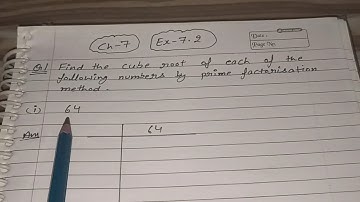 Ch-7 Ex-7.2
Date:
Page No:
Q1 Find the cube root of each of the
following numbers by prime factorisation
method.
(i) 64
Ans 64